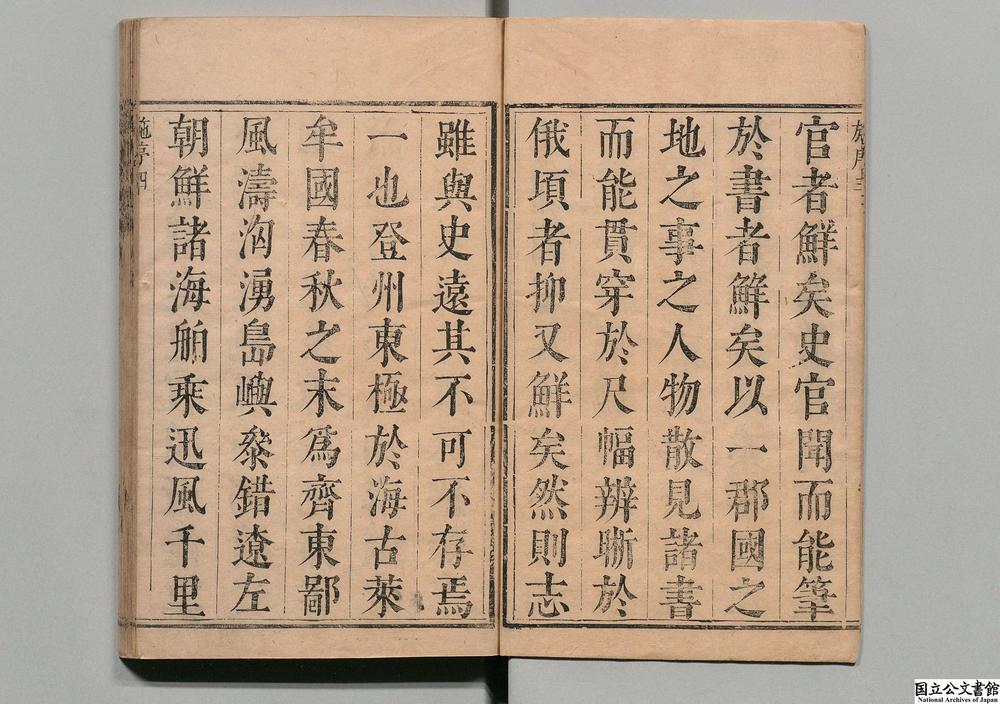 官者鮮矣史官聞而能筆
於書者鮮矣以一郡國之
地之事之人物散見諸書
而能貫穿於尺幅辨晣於
俄頃者抑又鮮矣然則志
雖與史遠其不可不存焉
一也登州東極於海古萊
牟國春秋之末爲齊東鄙
風濤洶湧島嶼叅錯遼左
朝鮮諸海舶乘迅風千里
施序四
国立公文書館
National Archives of Japan